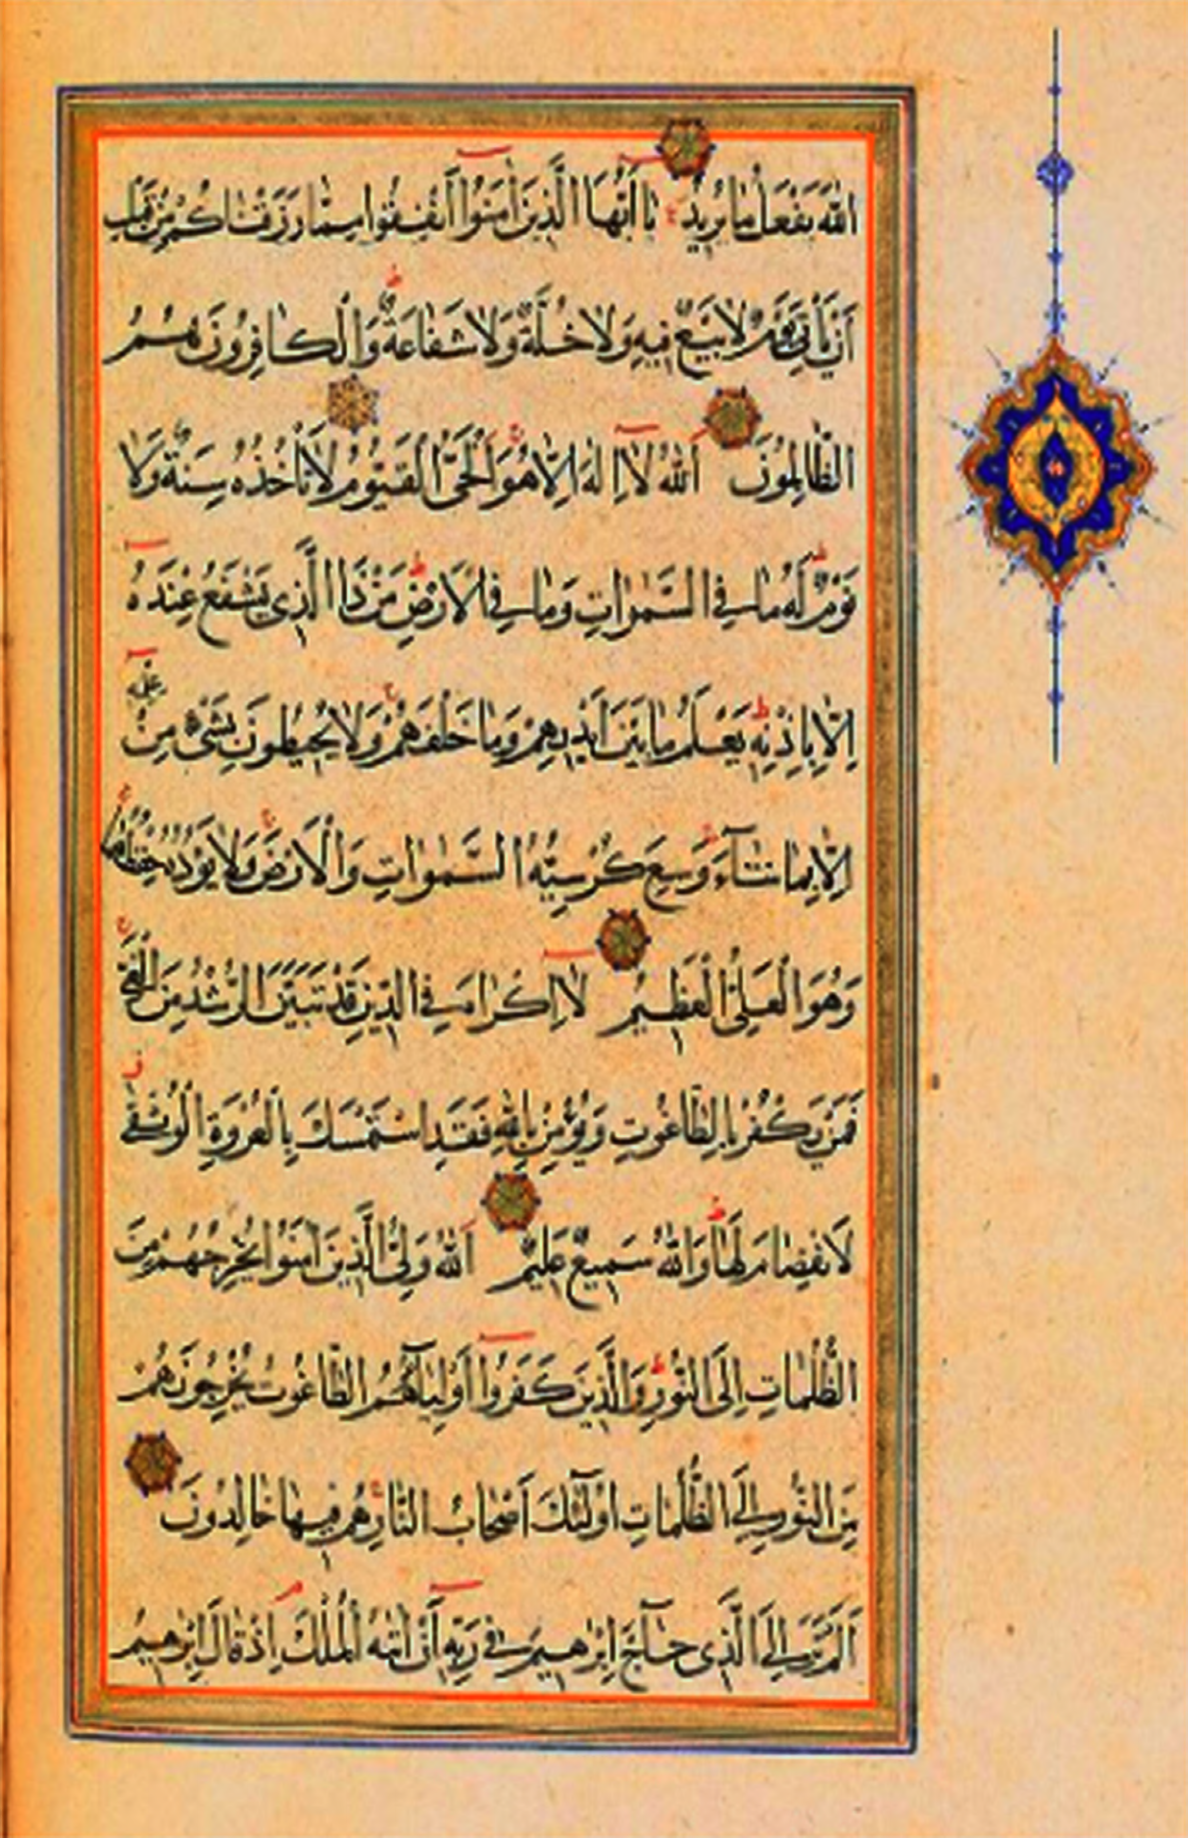 اللّٰهَ يَفْعَلُ مَا يُرِيدُ يَا اَيُّهَا الَّذِينَ اٰمَنُوا اَنْفِقُوا مِمَّا رَزَقْنَاكُمْ مِنْ قَبْلِ
اَنْ يَأْتِيَ يَوْمٌ لَا بَيْعٌ فِيهِ وَلَا خُلَّةٌ وَلَا شَفَاعَةٌ وَالْكَافِرُونَ هُمُ
الظَّالِمُونَ اَللّٰهُ لَا اِلٰهَ اِلَّا هُوَ اَلْحَيُّ الْقَيُّومُ لَا تَأْخُذُهُ سِنَةٌ وَلَا
نَوْمٌ لَهُ مَا فِي السَّمٰوَاتِ وَمَا فِي الْاَرْضِ مَنْ ذَا الَّذِي يَشْفَعُ عِنْدَهُ
اِلَّا بِاِذْنِهِ يَعْلَمُ مَا بَيْنَ اَيْدِيهِمْ وَمَا خَلْفَهُمْ وَلَا يُحِيطُونَ بِشَيْءٍ مِنْ عِلْمِهِ
اِلَّا بِمَا شَآءَ وَسِعَ كُرْسِيُّهُ السَّمٰوَاتِ وَالْاَرْضَ وَلَا يَؤُدُهُ حِفْظُهُمَا
وَهُوَ الْعَلِيُّ الْعَظِيمُ لَا اِكْرَاهَ فِي الدِّينِ قَدْ تَبَيَّنَ الرُّشْدُ مِنَ الْغَيِّ
فَمَنْ يَكْفُرْ بِالطَّاغُوتِ وَيُؤْمِنْ بِاللّٰهِ فَقَدِ اسْتَمْسَكَ بِالْعُرْوَةِ الْوُثْقٰى
لَا انْفِصَامَ لَهَا وَاللّٰهُ سَمِيعٌ عَلِيمٌ اَللّٰهُ وَلِيُّ الَّذِينَ اٰمَنُوا يُخْرِجُهُمْ مِنَ
الظُّلُمَاتِ اِلَى النُّورِ وَالَّذِينَ كَفَرُوا اَوْلِيَآؤُهُمُ الطَّاغُوتُ يُخْرِجُونَهُمْ
مِنَ النُّورِ اِلَى الظُّلُمَاتِ اُولٰٓئِكَ اَصْحَابُ النَّارِ هُمْ فِيهَا خَالِدُونَ
اَلَمْ تَرَ اِلَى الَّذِي حَآجَّ اِبْرٰهِيمَ فِي رَبِّهِ اَنْ اٰتٰيهُ اللّٰهُ الْمُلْكَ اِذْ قَالَ اِبْرٰهِيمُ